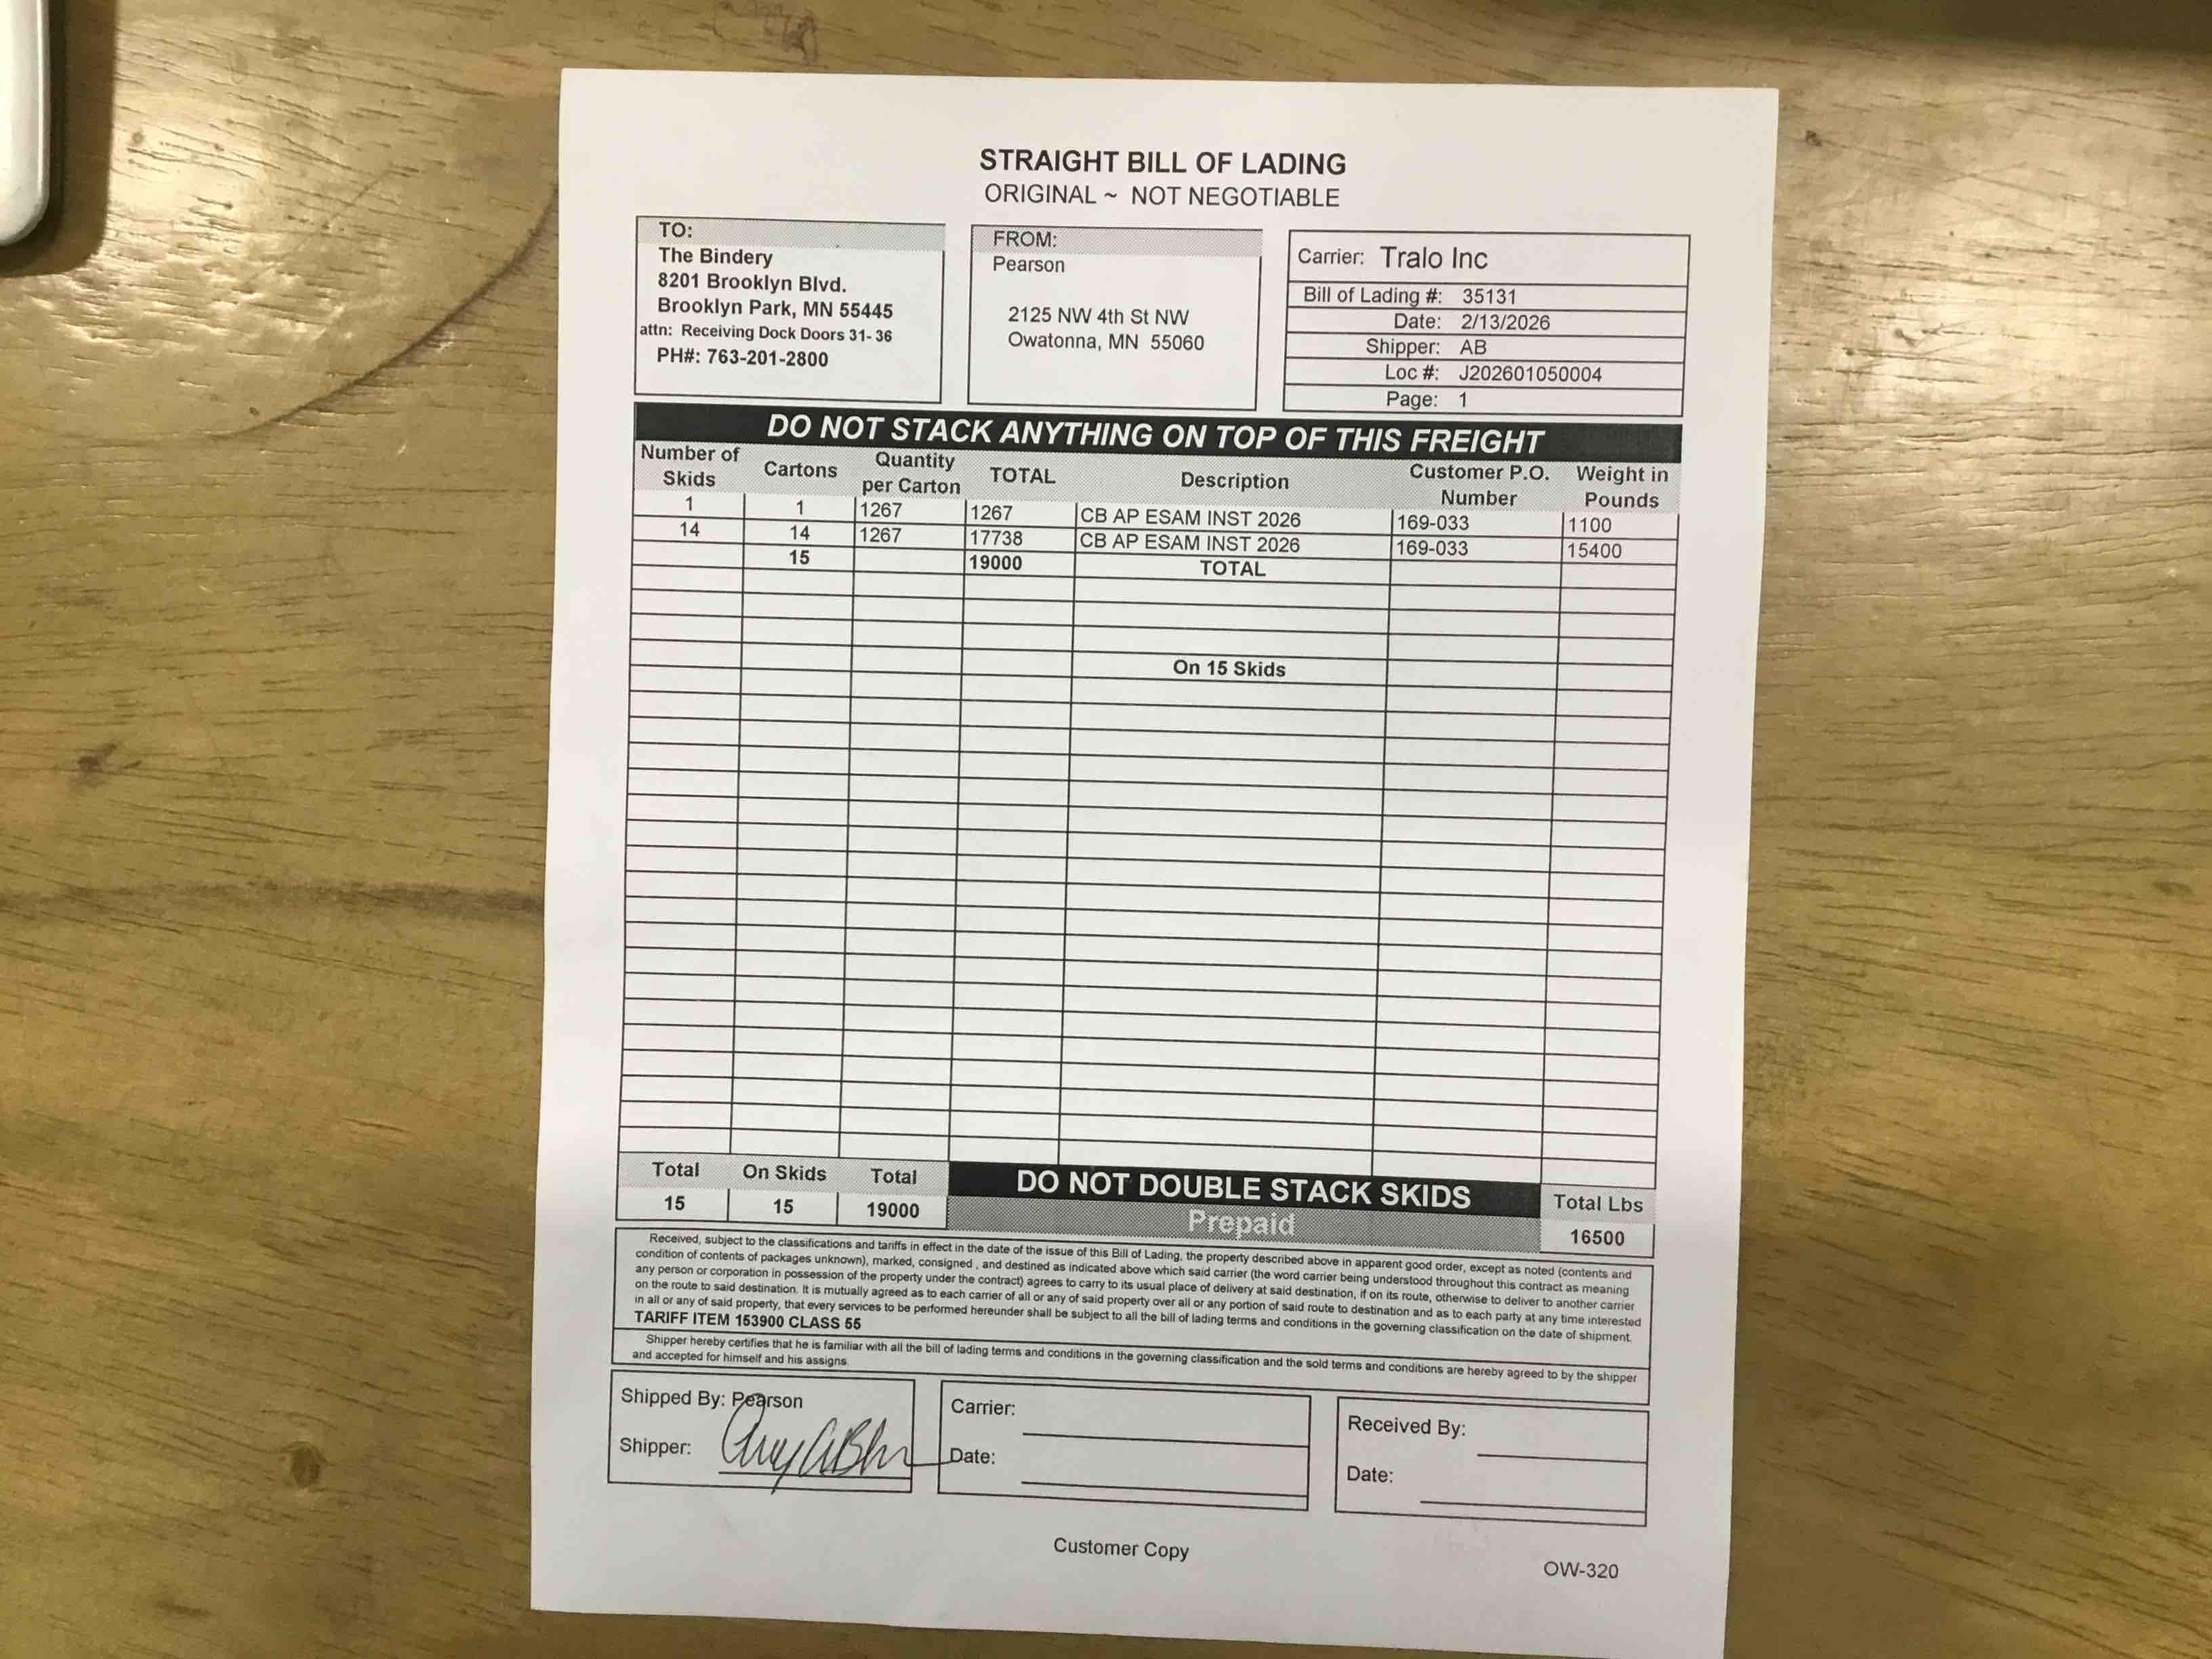 STRAIGHT BILL OF LADING
ORIGINAL ~ NOT NEGOTIABLE
TO:
The Bindery
8201 Brooklyn Blvd.
Brooklyn Park, MN 55445
attn: Receiving Dock Doors 31- 36
PH#: 763-201-2800
FROM:
Pearson
2125 NW 4th St NW
Owatonna, MN 55060
Carrier: Tralo Inc
Bill of Lading #: 35131
Date: 2/13/2026
Shipper: AB
Loc #: J202601050004
Page: 1
DO NOT STACK ANYTHING ON TOP OF THIS FREIGHT
Number of Skids Cartons Quantity per Carton TOTAL Description Customer P.O. Number Weight in Pounds
1 1 1267 1267 CB AP ESAM INST 2026 169-033 1100
14 14 1267 17738 CB AP ESAM INST 2026 169-033 15400
15 19000 TOTAL
On 15 Skids
Total On Skids Total DO NOT DOUBLE STACK SKIDS Total Lbs
15 15 19000 Prepaid 16500
Received, subject to the classifications and tariffs in effect in the date of the issue of this Bill of Lading, the property described above in apparent good order, except as noted (contents and
condition of contents of packages unknown), marked, consigned , and destined as indicated above which said carrier (the word carrier being understood throughout this contract as meaning
any person or corporation in possession of the property under the contract) agrees to carry to its usual place of delivery at said destination, if on its route, otherwise to deliver to another carrier
on the route to said destination. It is mutually agreed as to each carrier of all or any of said property over all or any portion of said route to destination and as to each party at any time interested
in all or any of said property, that every services to be performed hereunder shall be subject to all the bill of lading terms and conditions in the governing classification on the date of shipment.
TARIFF ITEM 153900 CLASS 55
Shipper hereby certifies that he is familiar with all the bill of lading terms and conditions in the governing classification and the sold terms and conditions are hereby agreed to by the shipper
and accepted for himself and his assigns.
Shipped By: Pearson
Shipper:
Carrier:
Date:
Received By:
Date:
Customer Copy
OW-320